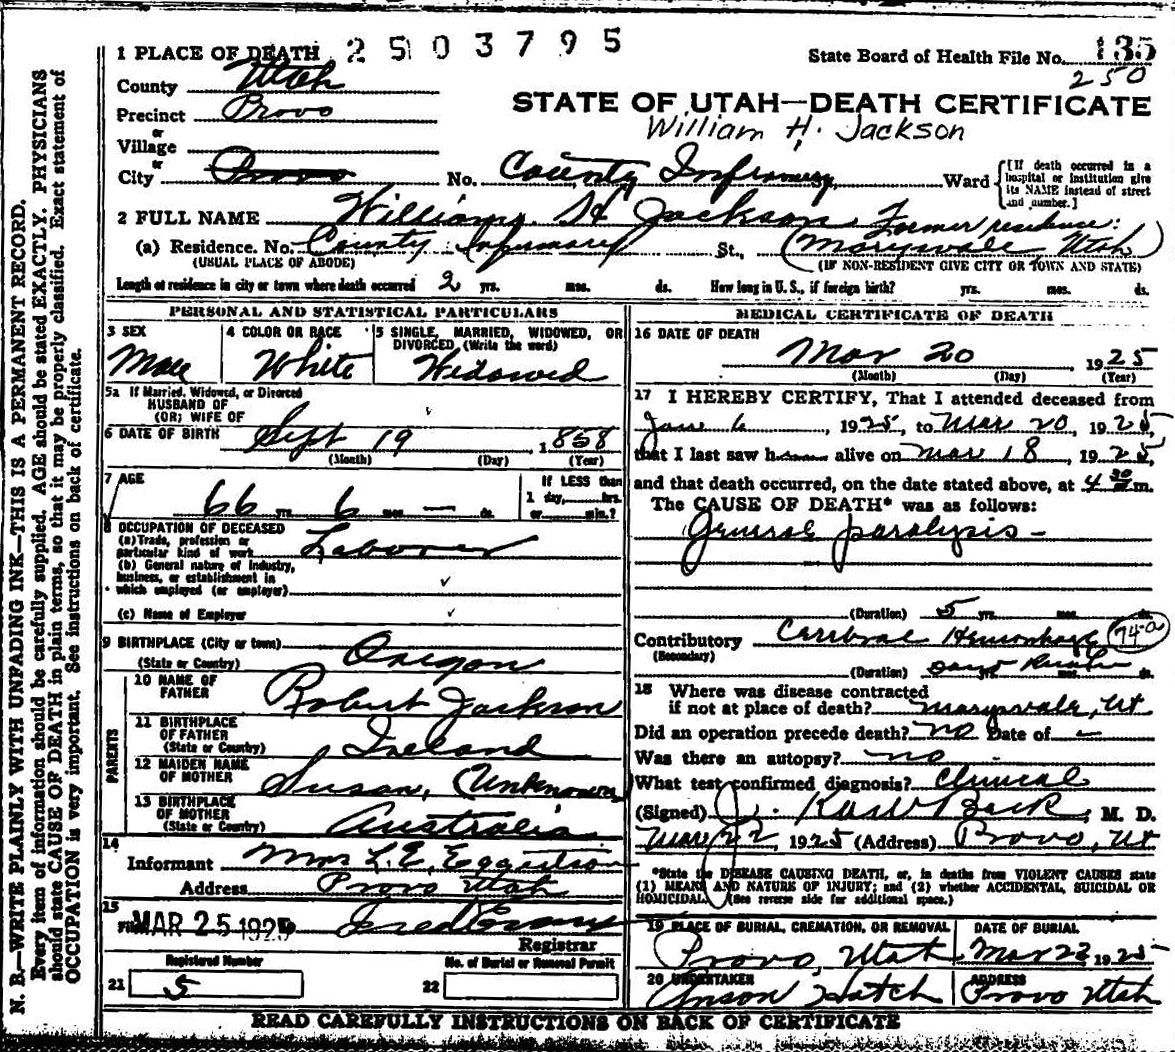 1 PLACE OF DEATH 2503795
State Board of Health File No. 135
250
County Utah
STATE OF UTAH—DEATH CERTIFICATE
Precinct Provo
William H. Jackson
or
Village
or
City Provo No. County Infirmary, Ward
[If death occurred in a hospital or institution give its NAME instead of street and number.]
2 FULL NAME William H Jackson Former residence:
(a) Residence. No. County Infirmary St., (Marysvale, Utah)
(USUAL PLACE OF ABODE) (IF NON-RESIDENT GIVE CITY OR TOWN AND STATE)
Length of residence in city or town where death occurred 2 yrs. mos. ds. How long in U. S., if foreign birth? yrs. mos. ds.
PERSONAL AND STATISTICAL PARTICULARS
3 SEX
Male
4 COLOR OR RACE
White
5 SINGLE, MARRIED, WIDOWED, OR
DIVORCED, (Write the word)
Widowed
5a If Married, Widowed, or Divorced
HUSBAND OF
(OR) WIFE OF
6 DATE OF BIRTH Sept 19, 1858
(Month) (Day) (Year)
7 AGE
66 yrs. 6 mos. — ds.
If LESS than
1 day, hrs.
or min.?
8 OCCUPATION OF DECEASED
(a) Trade, profession or
particular kind of work Laborer
(b) General nature of industry,
business, or establishment in
which employed (or employer)
(c) Name of Employer
9 BIRTHPLACE (City or town)
(State or Country) Oregon
PARENTS
10 NAME OF
FATHER Robert Jackson
11 BIRTHPLACE
OF FATHER
(State or Country) Ireland
12 MAIDEN NAME
OF MOTHER Susan, (Unknown
13 BIRTHPLACE
OF MOTHER
(State or Country) Australia
14
Informant Mrs L. E. Eggertson
Address Provo Utah
15
MAR 25 1925 Fred Evans
Registrar
Registered Number
21 5
No. of Burial or Removal Permit
22
MEDICAL CERTIFICATE OF DEATH
16 DATE OF DEATH
Mar 20 1925
(Month) (Day) (Year)
17 I HEREBY CERTIFY, That I attended deceased from
Jan 6, 1925, to Mar 20, 1925,
that I last saw him alive on Mar 18, 1925,
and that death occurred, on the date stated above, at 4 30 m.
The CAUSE OF DEATH* was as follows:
General paralysis —
(Duration) 5 yrs. mos. ds.
Contributory Cerebral Hemorrhage 74-a
(Secondary)
(Duration) yrs. mos. ds.
18 Where was disease contracted
if not at place of death? Marysvale, Ut
Did an operation precede death? no Date of —
Was there an autopsy? no
What test confirmed diagnosis? Clinical
(Signed) J. Karl Beck, M. D.
Mar 22, 1925 (Address) Provo, Ut
*State the DISEASE CAUSING DEATH, or, in deaths from VIOLENT CAUSES state
(1) MEANS AND NATURE OF INJURY; and (2) whether ACCIDENTAL, SUICIDAL OR
HOMICIDAL. (See reverse side for additional space.)
19 PLACE OF BURIAL, CREMATION, OR REMOVAL
Provo, Utah
DATE OF BURIAL
Mar 23 1925
20 UNDERTAKER
Anson Hatch
ADDRESS
Provo Utah
READ CAREFULLY INSTRUCTIONS ON BACK OF CERTIFICATE
N. B.—WRITE PLAINLY WITH UNFADING INK—THIS IS A PERMANENT RECORD.
Every item of information should be carefully supplied. AGE should be stated EXACTLY. PHYSICIANS
should state CAUSE OF DEATH in plain terms, so that it may be properly classified. Exact statement of
OCCUPATION is very important. See instructions on back of certificate.